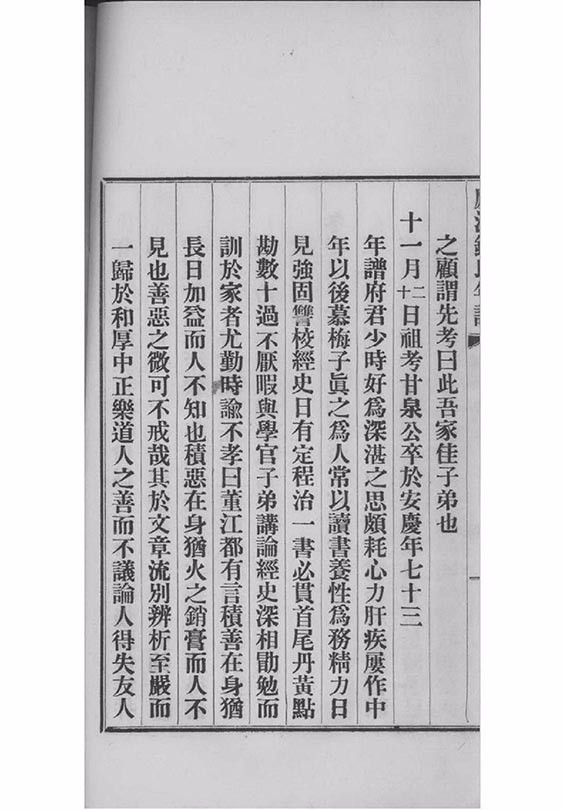 之顧謂先考曰此吾家佳子弟也
十一月十二日祖考甘泉公卒於安慶年七十三
年譜府君少時好爲深湛之思頗耗心力肝疾屢作中
年以後慕梅子眞之爲人常以讀書養性爲務精力日
見強固讐校經史日有定程治一書必貫首尾丹黃點
勘數十過不厭暇與學官子弟講論經史深相勖勉而
訓於家者尤勤時諭不孝曰董江都有言積善在身猶
長日加益而人不知也積惡在身猶火之銷膏而人不
見也善惡之微可不戒哉其於文章流別辨析至嚴而
一歸於和厚中正樂道人之善而不議論人得失友人